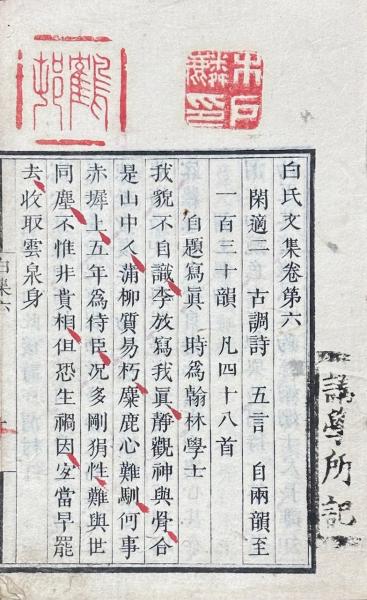 鶴邨
白氏文集卷第六
閑適二 古調詩 五言 自兩韻至
一百三十韻 凡四十八首
自題寫眞 時爲翰林學士
我貌不自識李放寫我眞靜觀神與骨合
是山中人蒲柳質易朽麋鹿心難馴何事
赤墀上五年爲侍臣况多剛狷性難與世
同塵不惟非貴相但恐生禍因宜當早罷
去收取雲泉身
白集六
講學所記